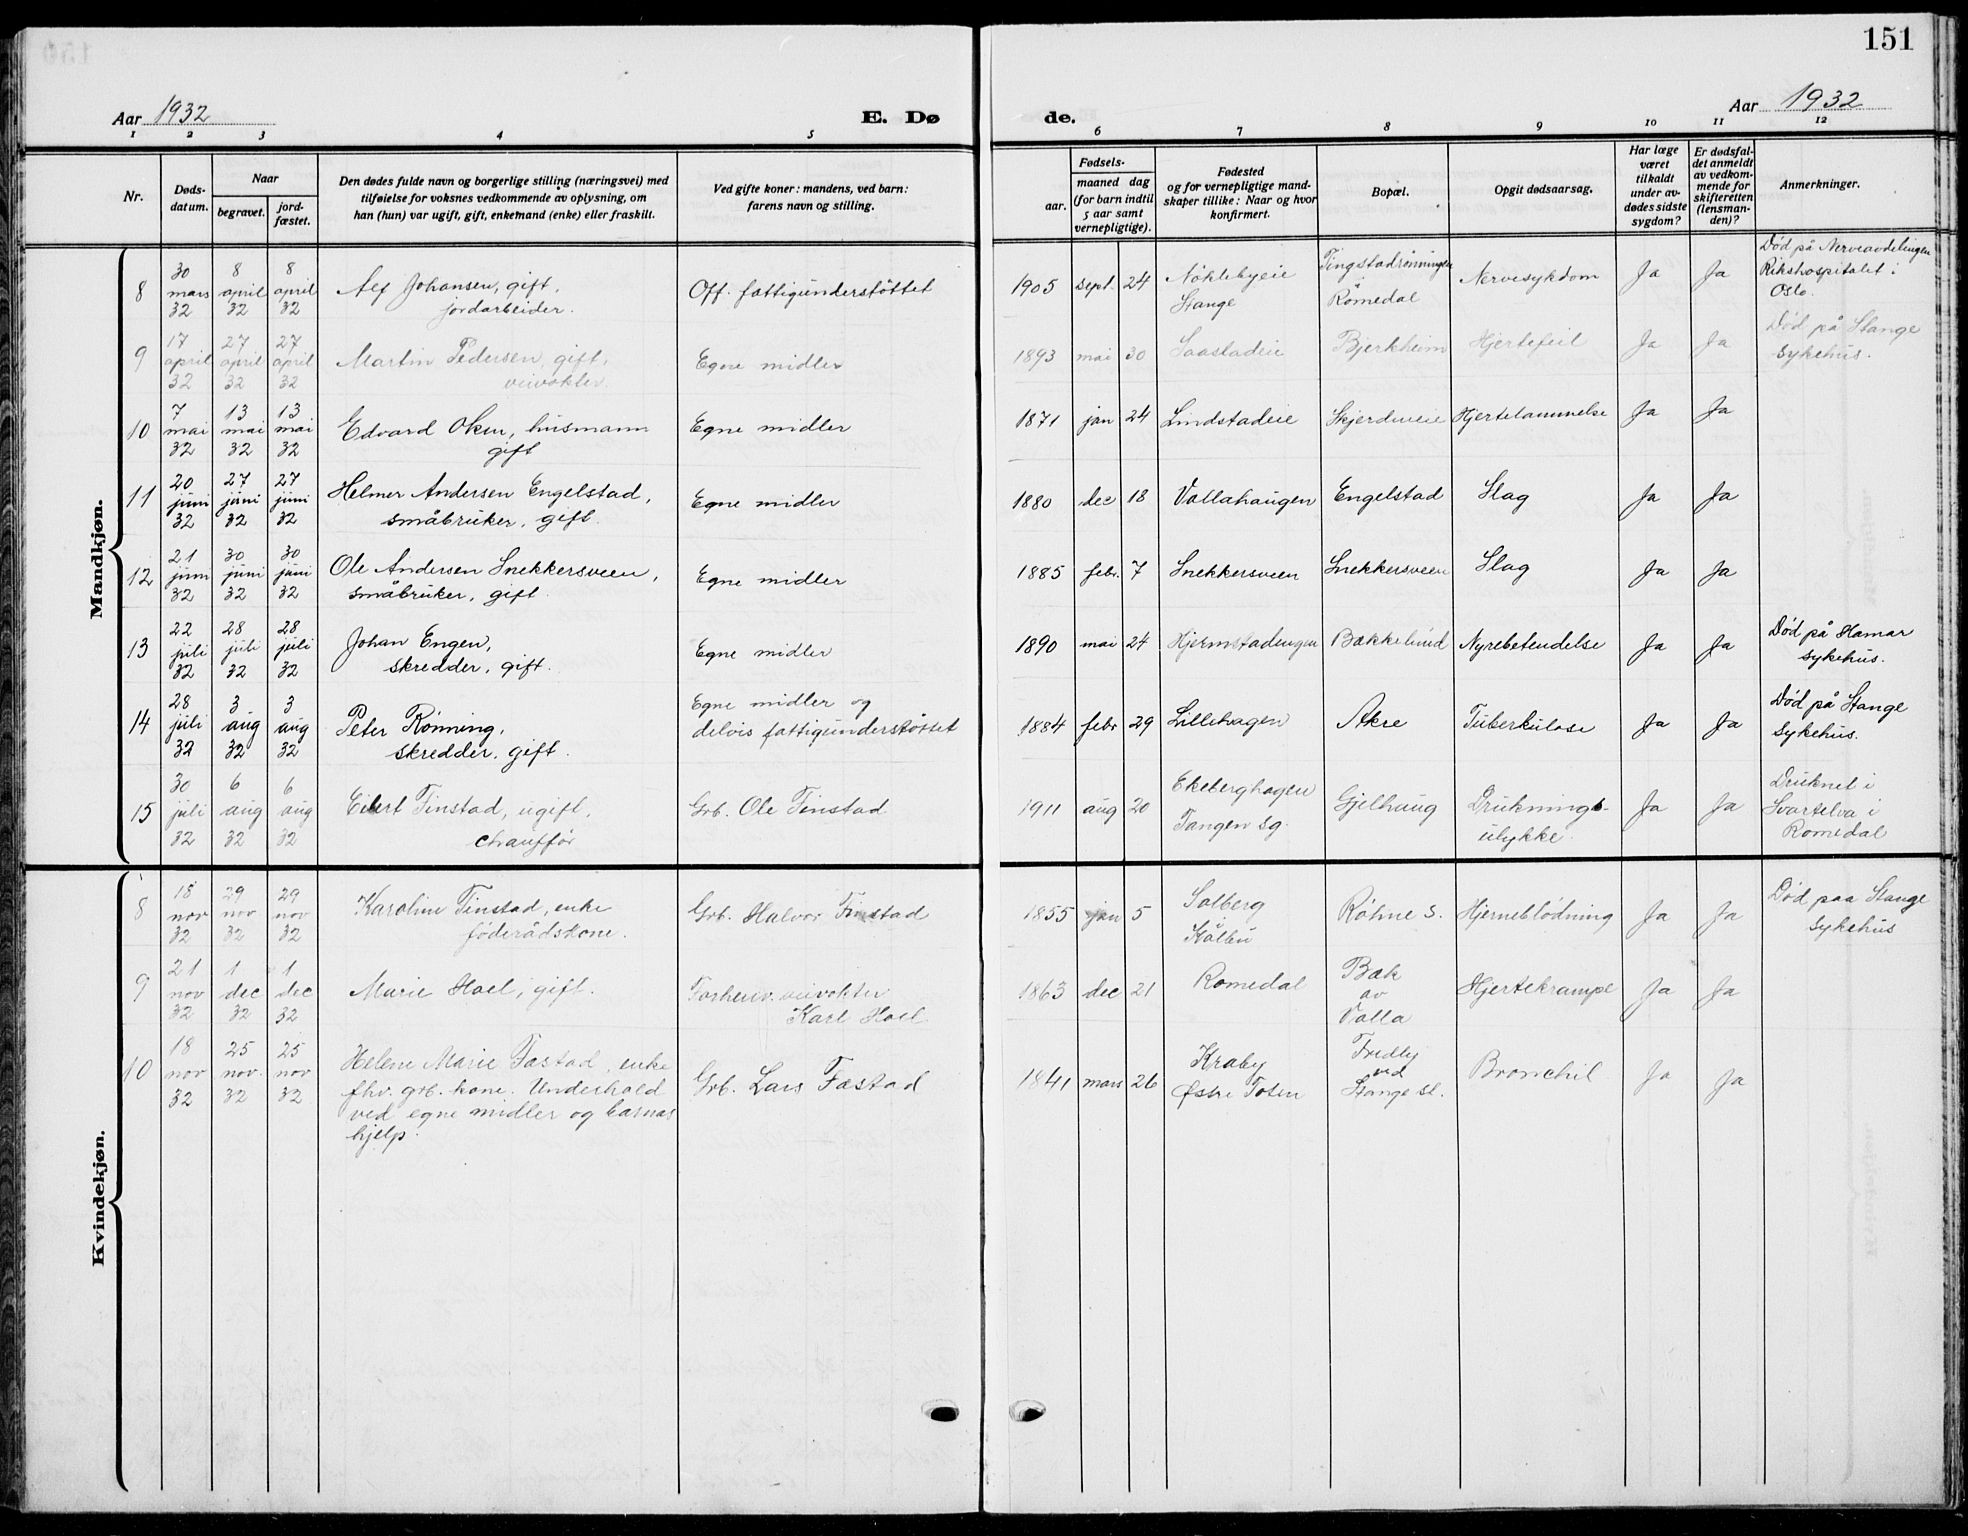 151
Aar 1932
E. Dø
de.
Aar 1932
1 2 3 4 5 6 7 8 9 10 11 12
Nr.
Døds-
datum.
Naar
begravet.
jord-
fæstet.
Den dødes fulde navn og borgerlige stilling (næringsvei) med
tilføielse for voksnes vedkommende av oplysning, om
han (hun) var ugift, gift, enkemand (enke) eller fraskilt.
Ved gifte koner: mandens, ved barn:
farens navn og stilling.
Fødsels-
aar.
maaned dag
(for barn indtil
5 aar samt
vernepligtige).
Fødested
og for vernepligtige mand-
skaper tillike: Naar og hvor
konfirmert.
Bopæl.
Opgit dødsaarsag.
Har læge
været
tilkaldt
under av-
dødes sidste
sygdom?
Er dødsfal-
det anmeldt
av vedkom-
mende for
skifteretten
(lensman-
den)?
Anmerkninger.
Mandkjøn.
8
30
mars
32
8
april
32
8
april
32
Alf Johansen, gift,
jordarbeider.
Off. fattigunderstöttet
1905 sept. 24
Nöklebyeie
Stange
Tingstadrönningen
Romedal
Nervesykdom
Ja
Ja
Död på Nerveavdelingen
Rikshospitalet i
Oslo.
9
17
april
32
27
april
32
27
april
32
Martin Pedersen, gift,
veivokter.
Egne midler
1893 mai 30
Saastadeie
Bjerkheim
Hjertefeil
Ja
Ja
Död på Stange
sykehus.
10
7
mai
32
13
mai
32
13
mai
32
Edvard Olsen, husmann
gift
Egne midler
1871 jan 24
Lindstadeie
Skjerdineie
Hjertelammelse
Ja
Ja
11
20
juni
32
27
juni
32
27
juni
32
Helmer Andersen Engelstad,
småbruker, gift.
Egne midler
1880 dec 18
Vallahaugen
Engelstad
Slag
Ja
Ja
12
21
juni
32
30
juni
32
30
juni
32
Ole Andersen Snekkersveen,
småbruker, gift.
Egne midler
1885 febr. 7
Snekkersveen
Snekkersveen
Slag
Ja
Ja
13
22
juli
32
28
juli
32
28
juli
32
Johan Engen,
skredder, gift.
Egne midler
1890 mai 24
Hjermstadengen
Bækkelund
Nyrebetendelse
Ja
Ja
Död på Hamar
sykehus.
14
28
juli
32
3
aug
32
3
aug
32
Peter Rönning,
skredder, gift.
Egne midler og
delvis fattigunderstöttet
1884 febr 29
Lillehagen
Akre
Tuberkulose
Ja
Ja
Död på Stange
sykehus.
15
30
juli
32
6
aug
32
6
aug
32
Eilert Finstad, ugift,
chaufför
Grb. Ole Finstad
1911 aug 20
Ekeberghagen
Tangen sg.
Gjelhaug
Druknings-
ulykke.
Ja
Ja
Druknet i
Svartelva i
Romedal
Kvindekjøn.
8
18
nov
32
29
nov
32
29
nov
32
Karoline Finstad, enke
föderådskone.
Grb. Halvor Finstad
1855 jan 5
Solberg
Stålbu
Röhne s.
Hjerneblödning
Ja
Ja
Död paa Stange
sykehus
9
21
nov
32
1
dec
32
1
dec
32
Marie Hoel, gift.
Forhenv. veivokter
Karl Hoel
1863 dec 21
Romedal
Bæk
av
Valla
Hjertekrampe
Ja
Ja
10
18
nov
32
25
nov.
32
25
nov
32
Helene Marie Fæstad, enke
fhv. grb. kone. Underhold
ved egne midler og barnas
hjelp.
Grb. Lars Fæstad
1841 mars 26
Kraby
Østre Toten
Fredly
ved
Stange st.
Bronchit
Ja
Ja